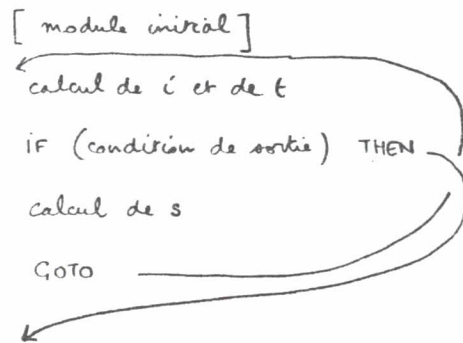 [ module initial ]
calcul de i et de t
IF (condition de sortie) THEN
calcul de s
GOTO